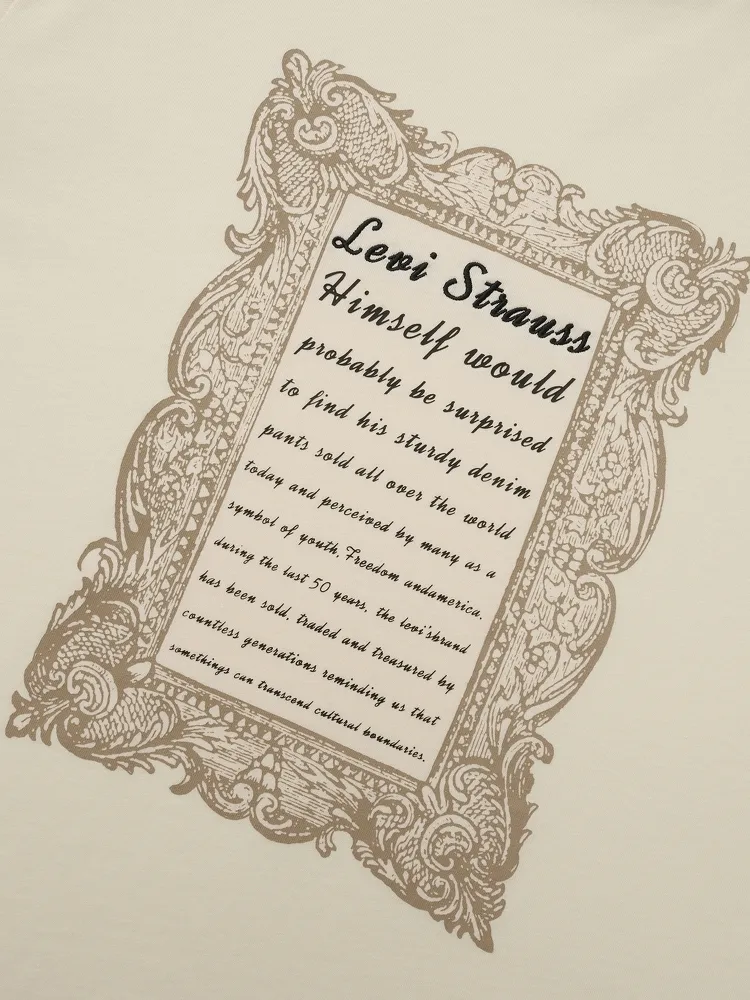 Levi Strauss
Himself would
probably be surprised
to find his sturdy denim
pants sold all over the world
today and perceived by many as a
symbol of youth, Freedom andamerica.
during the last 50 years, the levi'sbrand
has been sold, traded and treasured by
countless generations reminding us that
somethings can transcend cultural boundaries.